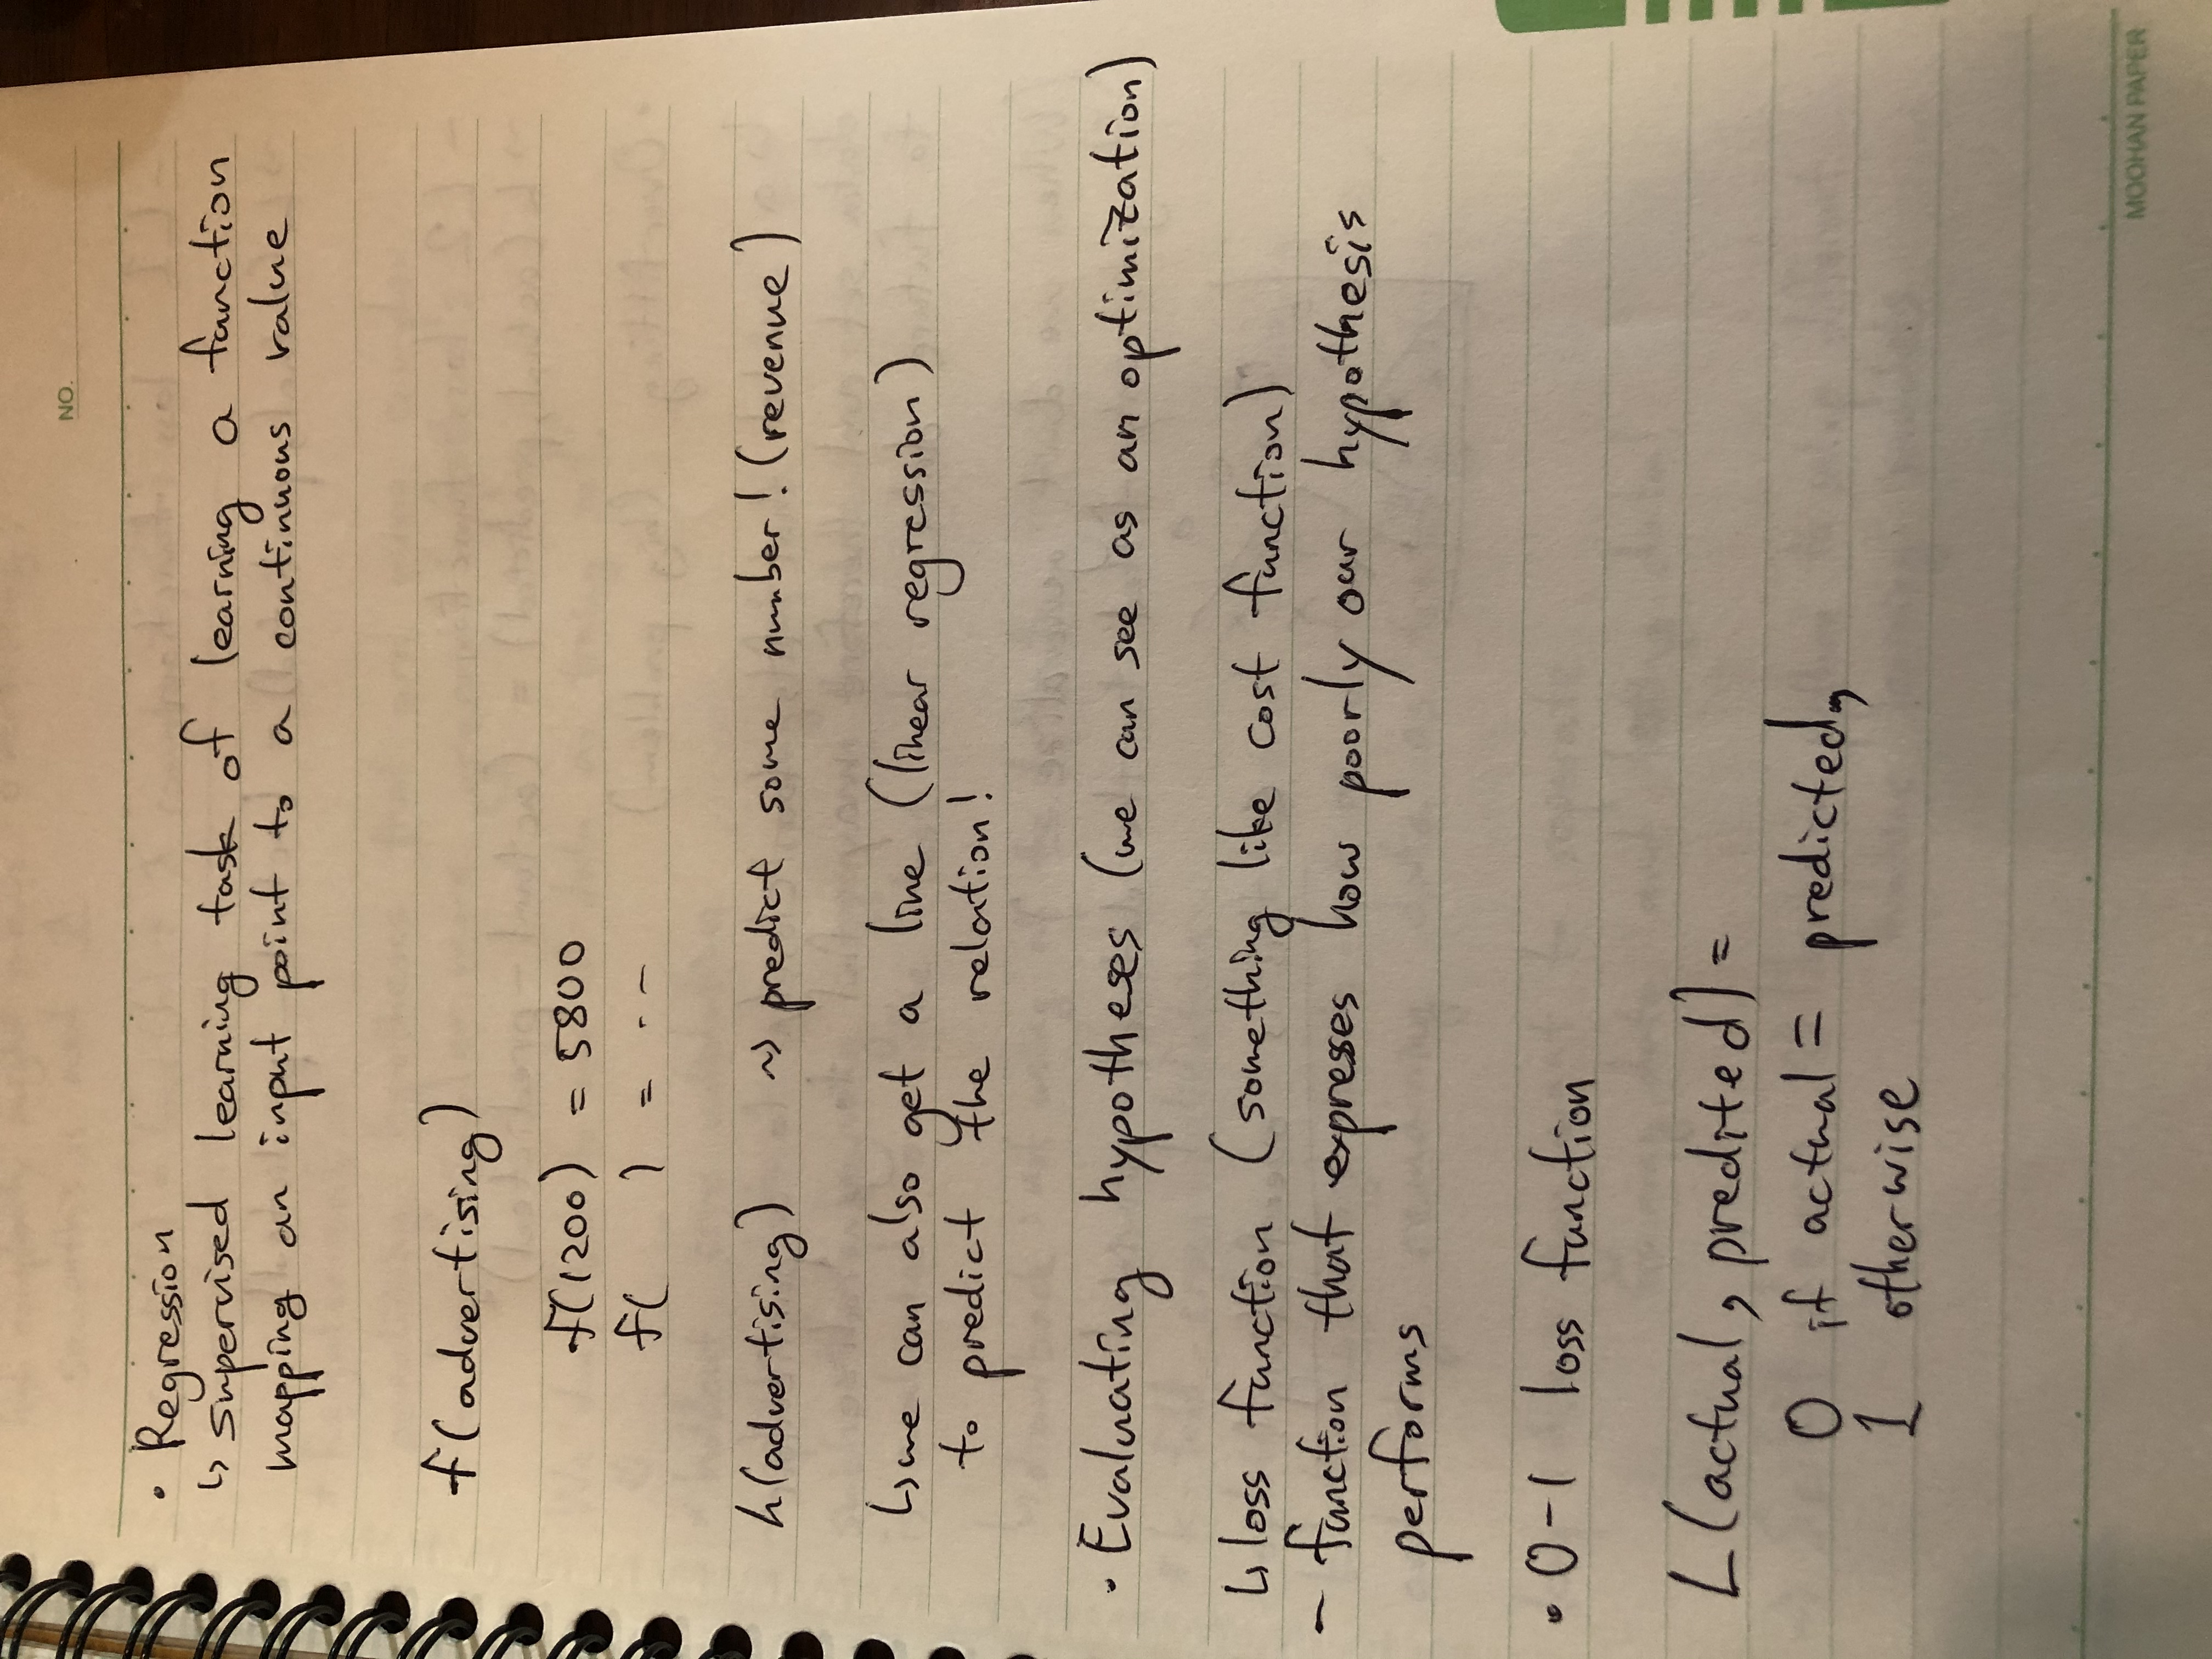 NO.
• Regression
↳ supervised learning task of learning a function
mapping an input point to a continuous value
f(advertising)
f(1200) = 5800
f( ) = · · –
h(advertising) ~> predict some number! (revenue)
↳ we can also get a line (linear regression)
to predict the relation!
• Evaluating hypotheses (we can see as an optimization)
↳ loss function (something like cost function)
– function that expresses how poorly our hypothesis
performs
• 0-1 loss function
L(actual, predited) =
0 if actual = predicted,
1 otherwise
MOOHAN PAPER